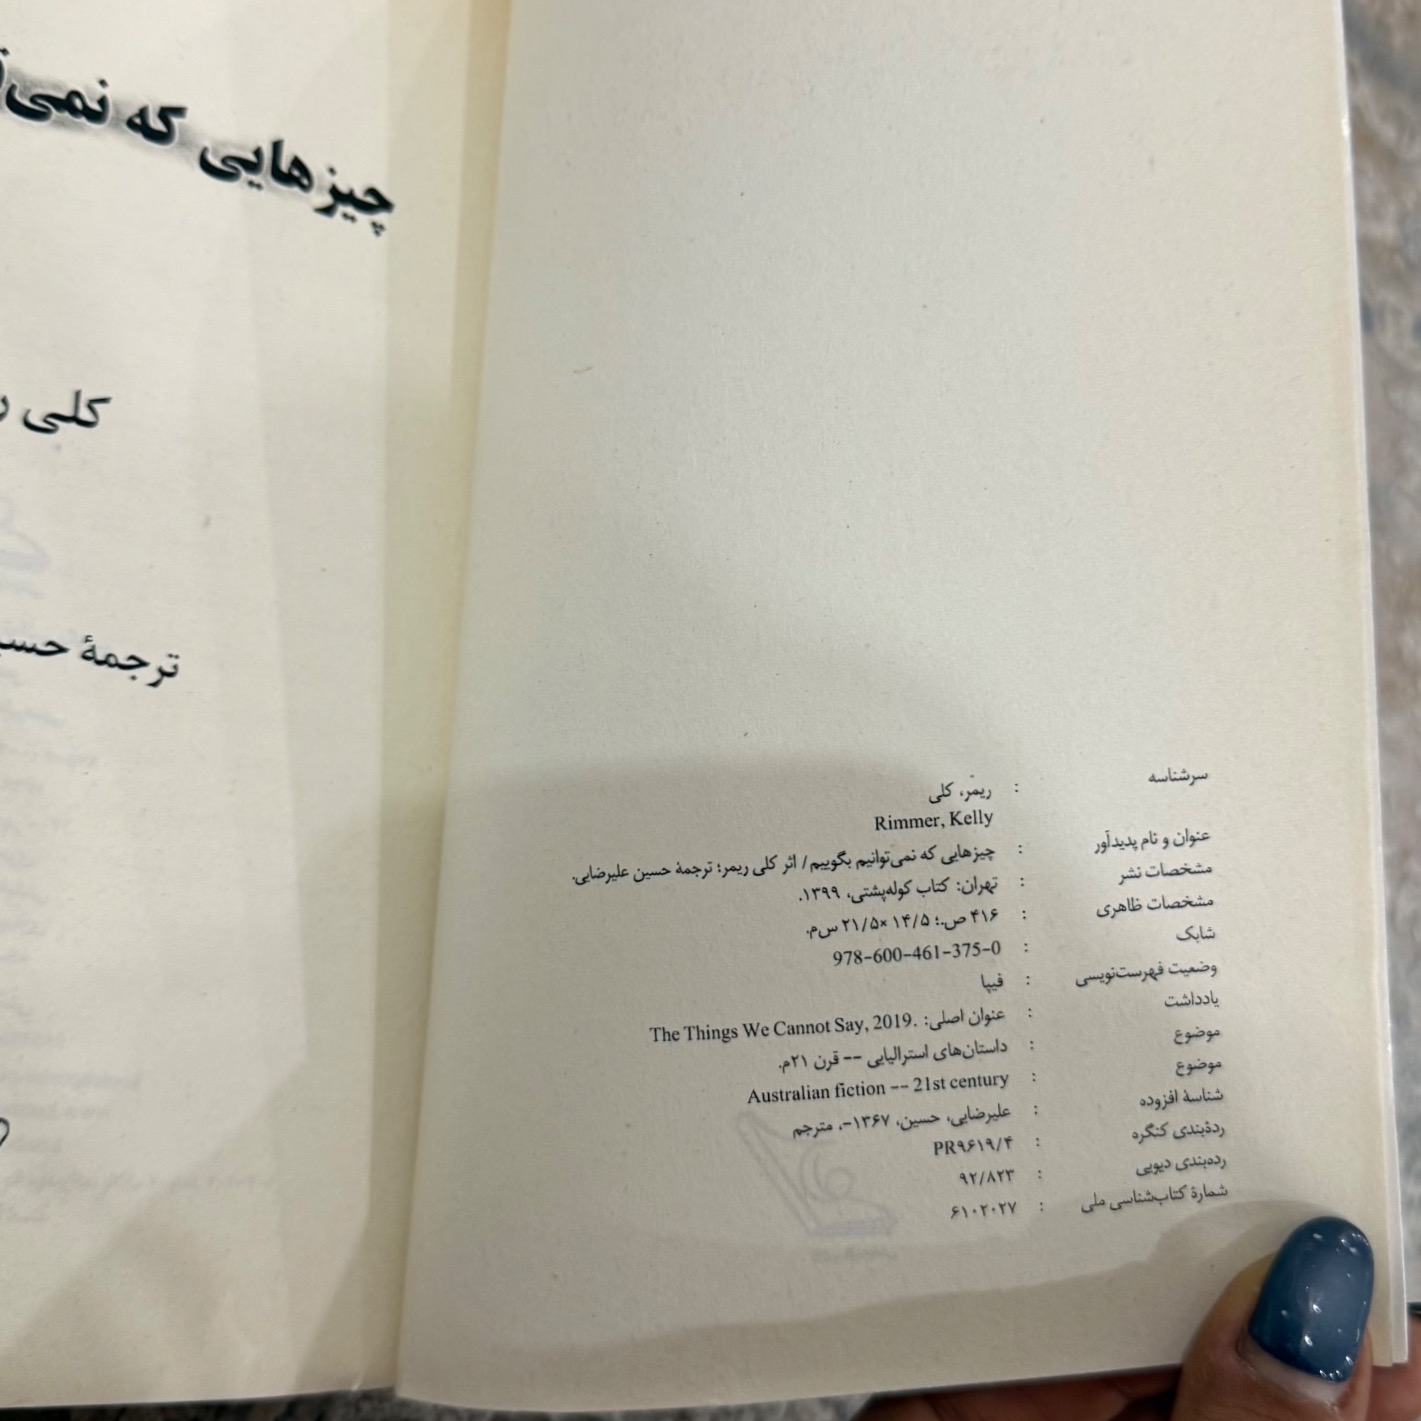 سرشناسه : ریمَر، کلی
Rimmer, Kelly
عنوان و نام پدیدآور : چیزهایی که نمی‌توانیم بگوییم/ اثر کلی ریمر؛ ترجمهٔ حسین علیرضایی.
مشخصات نشر : تهران: کتاب کوله‌پشتی، ۱۳۹۹.
مشخصات ظاهری : ۴۱۶ ص.؛ ۱۴/۵ ×۲۱/۵ س‌م.
شابک : 978-600-461-375-0
وضعیت فهرست‌نویسی : فیپا
یادداشت : عنوان اصلی: The Things We Cannot Say, 2019.
موضوع : داستان‌های استرالیایی -- قرن ۲۱م.
موضوع : Australian fiction -- 21st century
شناسهٔ افزوده : علیرضایی، حسین، ۱۳۶۷-، مترجم
ردهٔ‌بندی کنگره : PR۹۶۱۹/۴
رده‌بندی دیویی : ۹۲/۸۲۳
شمارهٔ کتاب‌شناسی ملی : ۶۱۰۲۰۲۷
چیزهایی که
کلی
ترجمهٔ